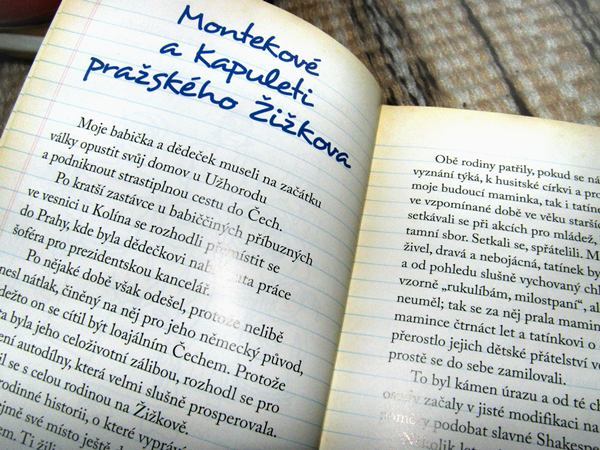 Montekové
a Kapuleti
pražského Žižkova
Moje babička a dědeček museli na začátku
války opustit svůj domov u Užhorodu
a podniknout strastiplnou cestu do Čech.
Po kratší zastávce u babiččiných příbuzných
ve vesnici u Kolína se rozhodli přemístit se
do Prahy, kde byla dědečkovi nabídnuta práce
šoféra pro prezidentskou kancelář.
Po nějaké době však odešel, protože nelibě
nesl nátlak, činěný na něj pro jeho německý původ,
on se cítil být loajálním Čechem. Protože
byla jeho celoživotní zálibou, rozhodl se pro
autodílny, která velmi slušně prosperovala.
se s celou rodinou na Žižkově.
rodinné historii, o které vypráví
své místo ještě
Ti žili
Obě rodiny patřily, pokud se
vyznání týká, k husitské církvi a
moje budoucí maminka, tak i
ve vzpomínané době ve věku
setkávali se při akcích pro mládež,
tamní sbor. Setkali se, spřátelili.
živel, dravá a nebojácná, tatínek
a od pohledu slušně vychovaný
vzorně „rukulíbám, milostpaní",
neuměl; tak se za něj prala
mamince čtrnáct let a tatínkovi o
přerostlo jejich dětské přátelství
prostě se do sebe zamilovali.
To byl kámen úrazu a od té
osudy začaly v jisté modifikaci na
poměry podobat slavné
Několik let